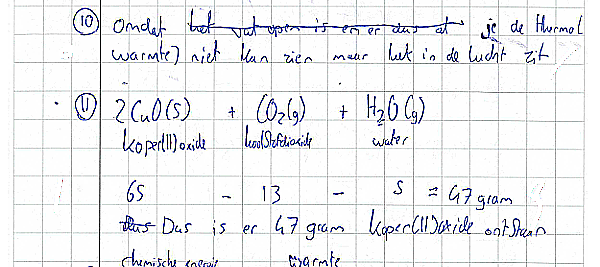 10 Omdat het vat open is en er dus at je de thermo (
warmte) niet kan zien maar het in de lucht zit
11 2CuO(s) + CO2(g) + H2O(g)
koper(II)oxide koolstofdioxide water
65 - 13 - 5 = 47 gram
Dus is er 47 gram koper(II)oxide ontstaan
chemische energie warmte